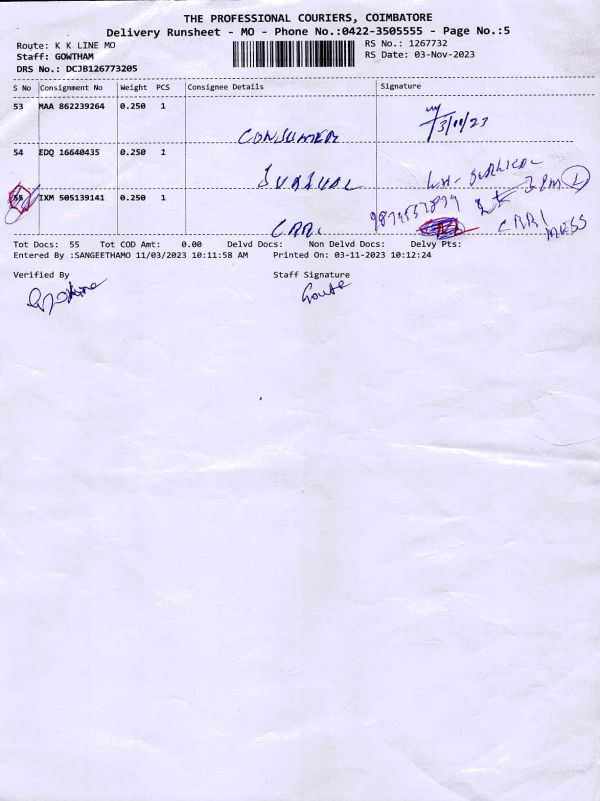 THE PROFESSIONAL COURIERS, COIMBATORE
Delivery Runsheet - MO - Phone No.:0422-3505555 - Page No.:5
Route: K K LINE MO
RS No.: 1267732
Staff: GOWTHAM
RS Date: 03-Nov-2023
DRS No.: DCJB126773205
S No Consignment No Weight PCS Consignee Details Signature
53 MAA 862239264 0.250 1
CONSUMER
3/11/23
54 EDQ 16640435 0.250 1
55 IXM 505139141 0.250 1
3 PM 1
CRRI
MESS
Tot Docs: 55 Tot COD Amt: 0.00 Delvd Docs: Non Delvd Docs: Delvy Pts:
Entered By :SANGEETHAMO 11/03/2023 10:11:58 AM Printed On: 03-11-2023 10:12:24
Verified By Staff Signature